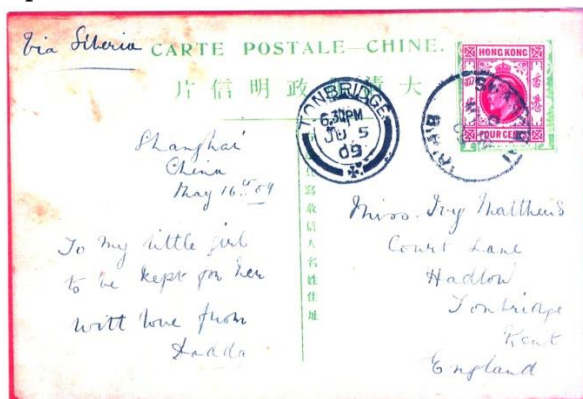 Via Siberia
CARTE POSTALE—CHINE.
片信明政郵清大
HONG KONG
香港
FOUR CENTS
SHANGHAI
TONBRIDGE
6.30PM
JU 5
09
Shanghai
China
May 16th 09
To my little girl
to be kept for her
with love from
Dadda
Miss. Ivy Matthews
Court Lane
Hadlow
Tonbridge
Kent
England